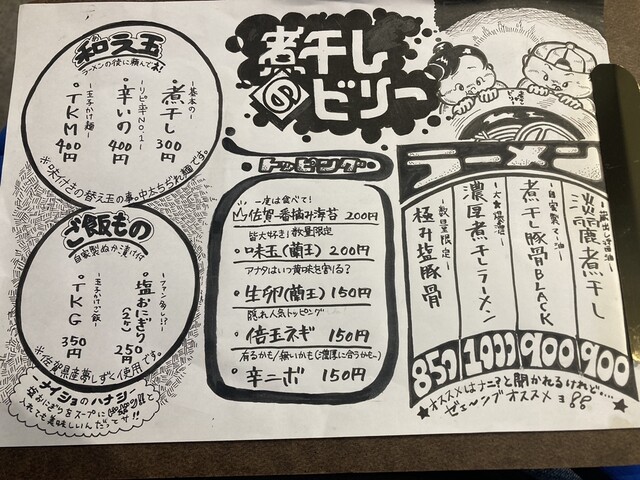 煮干し
ビリー
和え玉
ラーメンの後に頼んでネ!
ー基本のー
煮干し 300円
ーリピ率NO.1ー
辛いの 400円
ー玉子かけ麺ー
TKM 400円
※味付きの替え玉の事。中太ちぢれ麺です。
ご飯もの
自家製ぬか漬け付
ーファン多し!?ー
塩おにぎり(2ケ) 250円
ー玉子かけご飯ー
TKG 350円
※佐賀県産夢しずく使用です。
ナイショのハナシ
塩おにぎりをスープに
入れても美味しいんだってサ!!
トッピング
一度は食べて!
佐賀一番摘み海苔 200円
皆大好き!数量限定
・味玉(蘭王) 200円
アナタはいつ黄味を割る?
・生卵(蘭王) 150円
隠れ人気トッピング
・倍玉ネギ 150円
有るかも/無いかも(ご濃厚に合うかも~)
・辛ニボ 150円
ラーメン
ー蔵出し醤油ー
淡麗煮干し
900
ー自家製マー油ー
煮干し豚骨BLACK
900
濃厚煮干しラーメン
1000
ー数量限定ー
極み塩豚骨
850
★オススメはナニ?と聞かれるけれど…
ゼェ〜ンブオススメョ